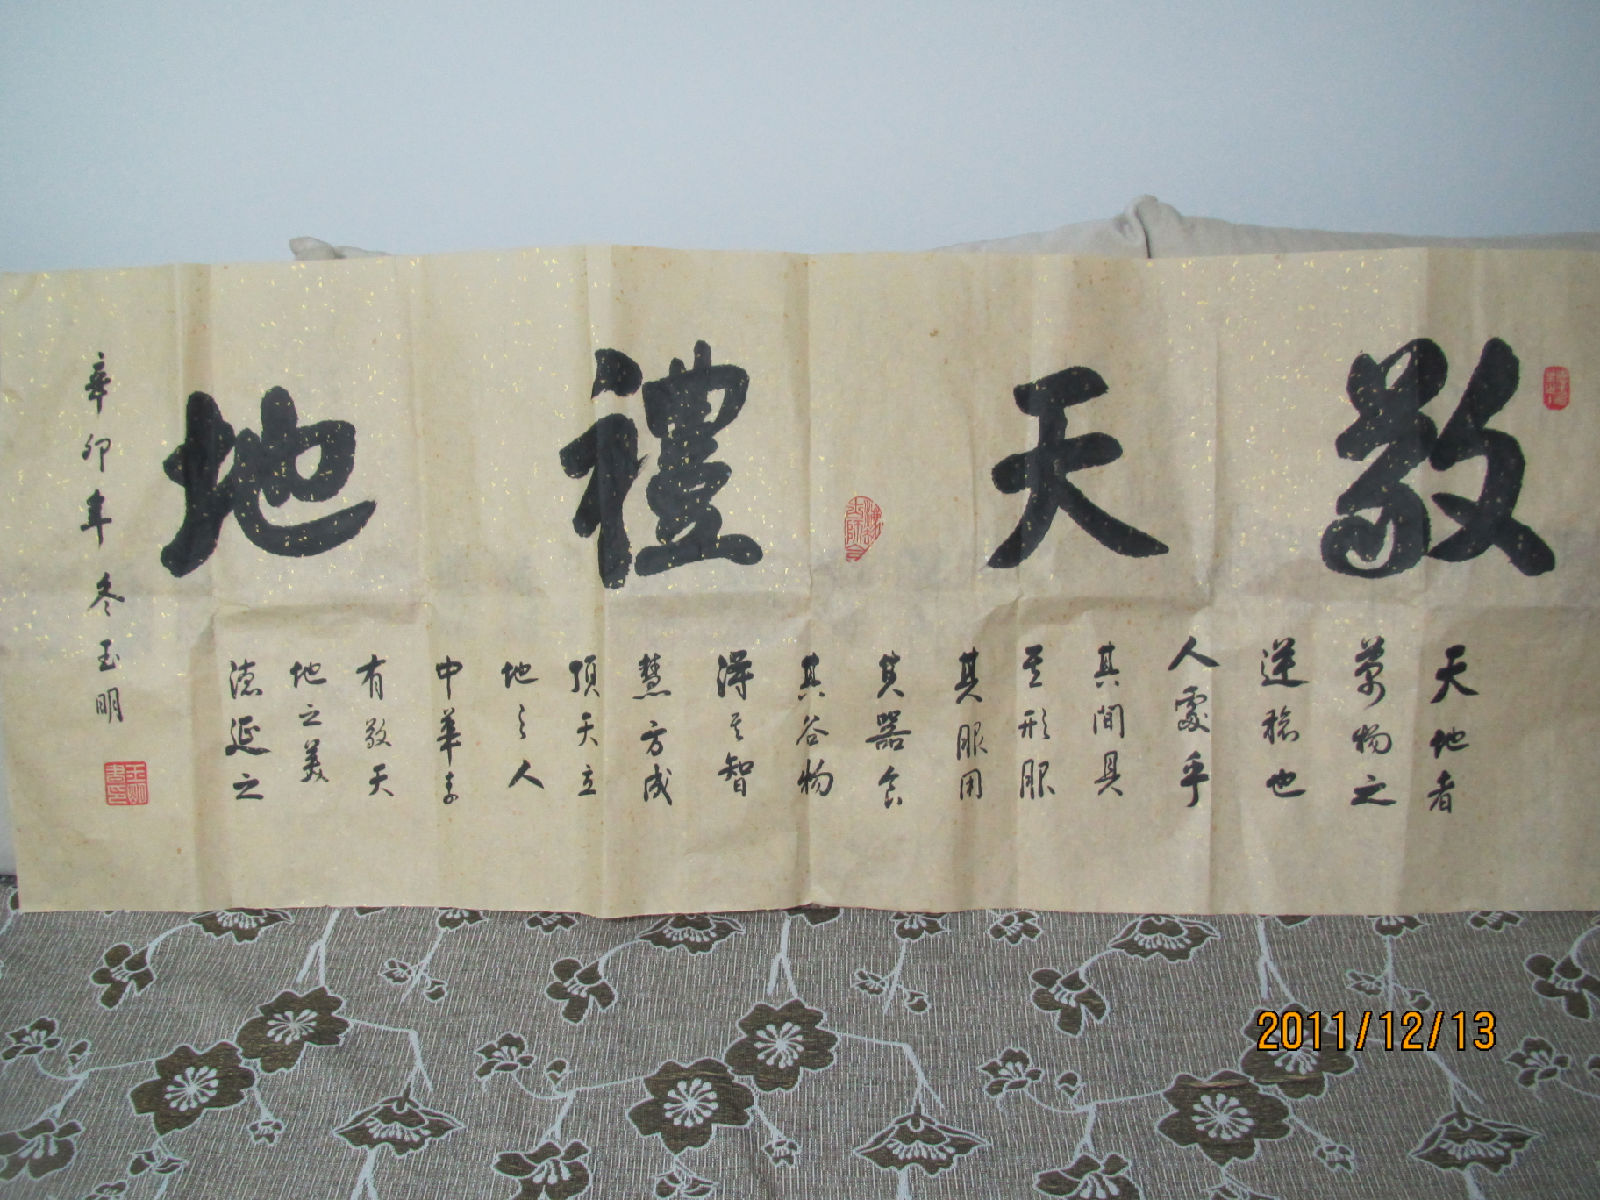 敬天禮地
天地者
萬物之
逆稔也
人處乎
其間具
其形服
其服用
其器食
其谷物
得其智
慧方成
頂天立
地之人
中華素
有敬天
地之美
德延之
辛卯年冬玉明
2011/12/13